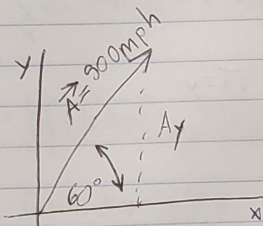 y
A⃗ = 900mph
Ay
60°
x